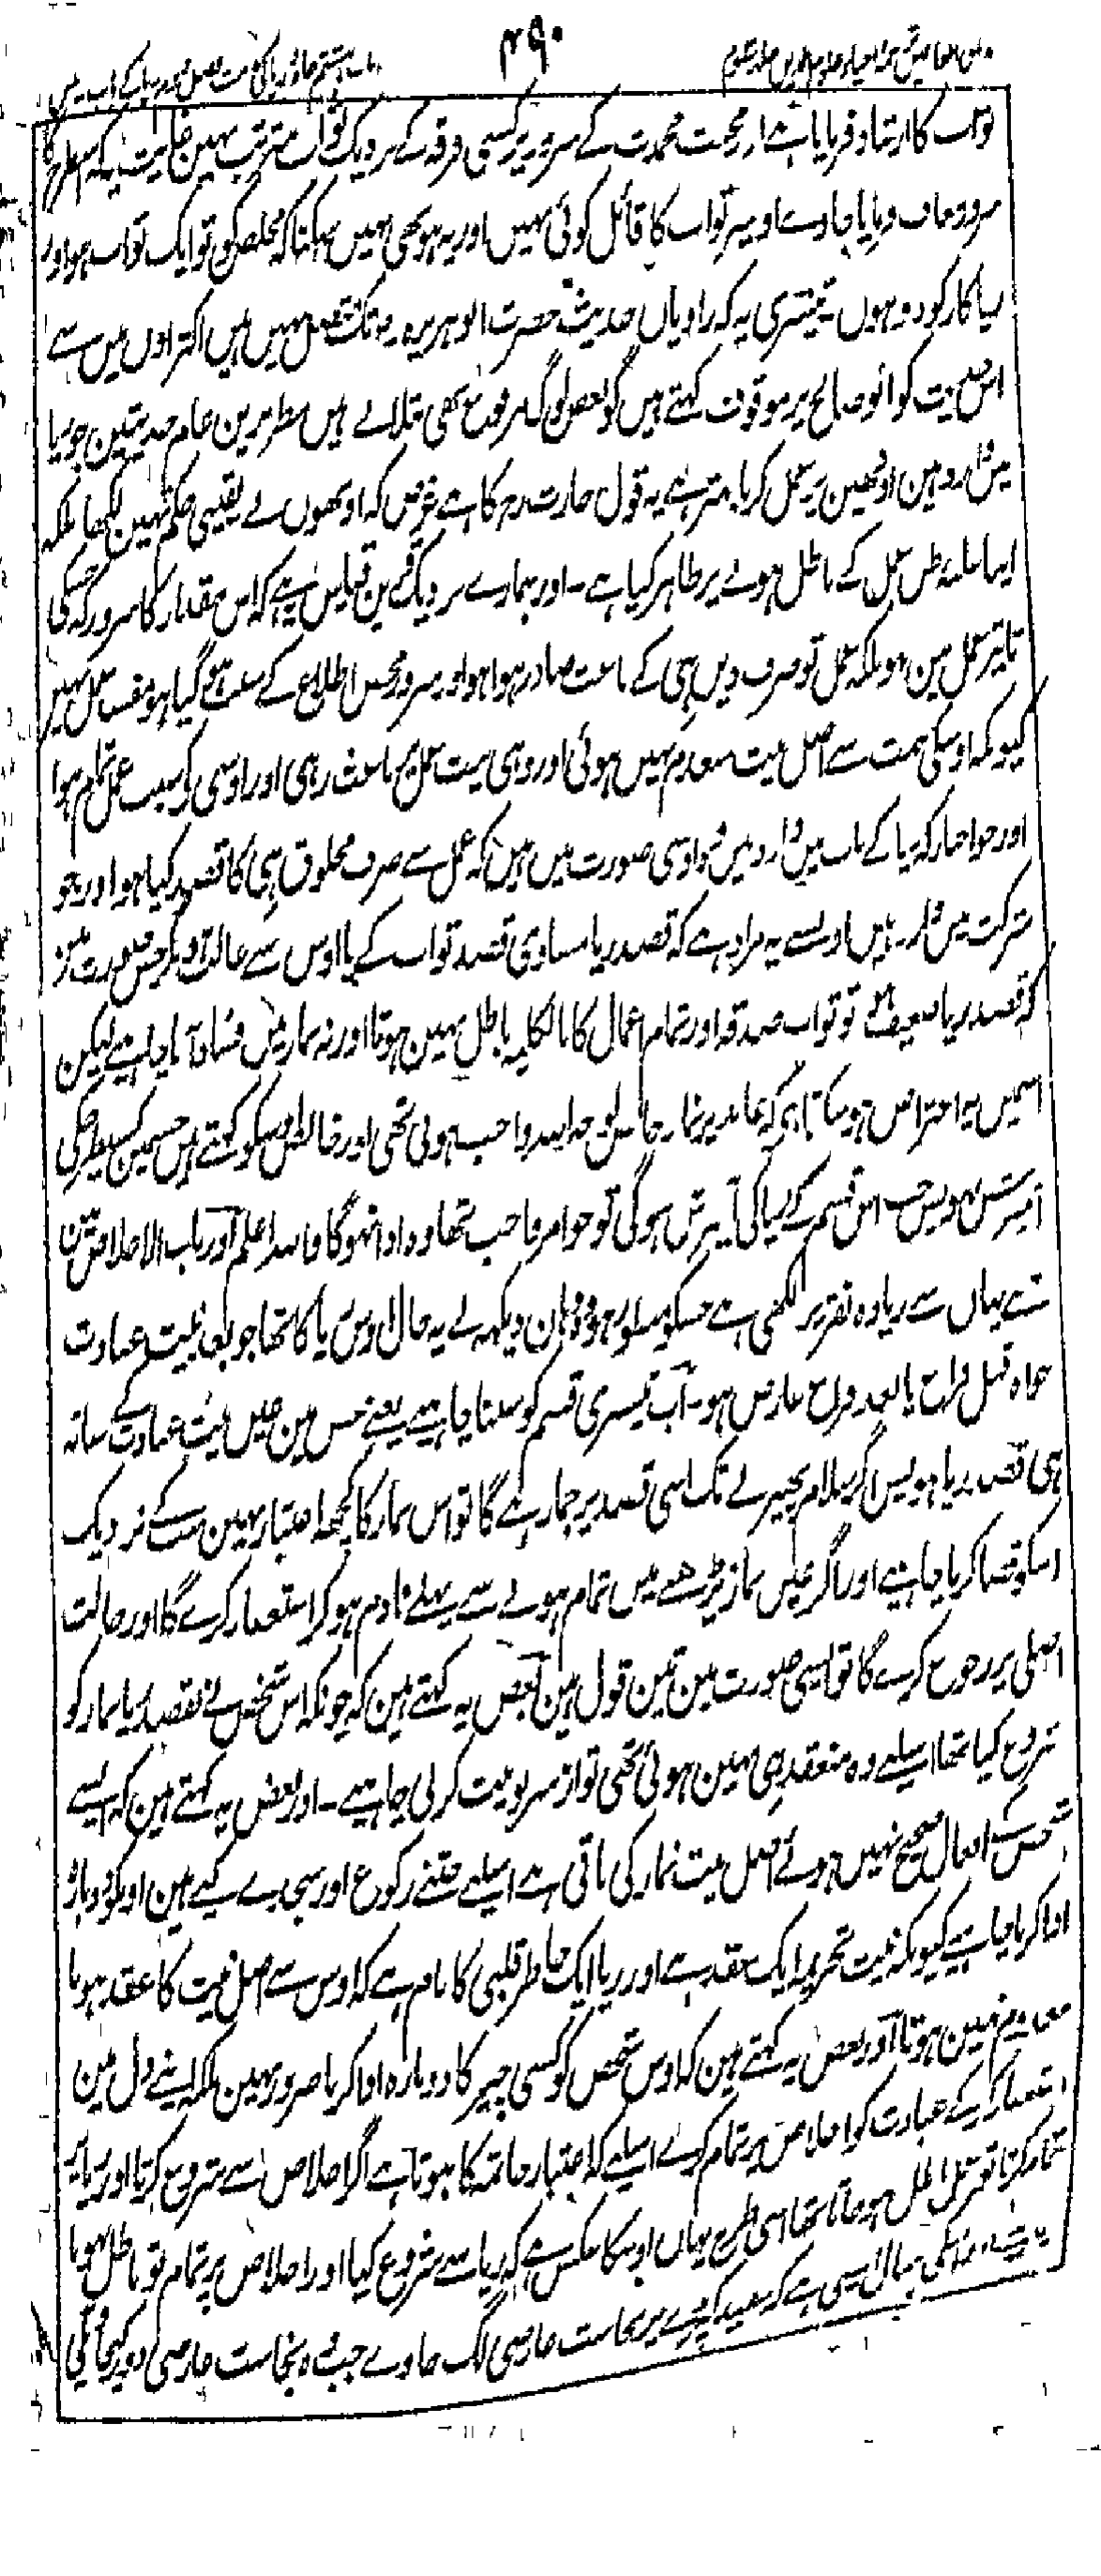 ۳۹۰
ثواب کا ارشاد فرمایا ہے اور محبت محمدت کے سرور پر کسی فرقہ کے نزدیک ثواب مترتب نہین غایت یہ کہ اسطرح کا
سرور معاف فرمایا جاوے اوسپر ثواب کا قائل کوئی نہیں اور یہ ہو بھی نہیں سکتا کہ مخلص کو تو ایک ثواب ہو اور
ریاکار کو دو ہوں تیسری یہ کہ راویان حدیث حضرت ابو ہریرہ رضہ تک متصل نہیں ہیں اکثر اون میں سے
اس حدیث کو ابو صالح پر موقوف کہتے ہیں گو بعض لوگ مرفوع بھی بتلاتے ہیں نظر برین عام حدیثین جو ریا
مین وارد ہین اونھین پر عمل کرنا بہتر ہے یہ قول حارث رہ کا ہے غرض کہ اونھوں نے یقینی حکم نہین لکھا بلکہ
اپنا غلبہ ظن عمل کے باطل ہونے پر ظاہر کیا ہے ۔ اور ہمارے نزدیک قرین قیاس یہ ہے کہ اس مقدار کا سرور کہ جسکی
تاثیر عمل مین نہو بلکہ عمل تو صرف دین ہی کے باعث صادر ہوا ہو اور سرور محض اطلاع کے سبب ہو گیا ہو مفسد عمل نہیں
کیونکہ اوسکی جہت سے اصل نیت معدوم نہیں ہوئی اور وہی نیت عمل پر باعث رہی اور اوسی کے سبب عمل تمام ہوا
اور جو اخبار کہ ریا کے باب میں وارد ہیں وہ اوسی صورت میں ہین کہ عمل سے صرف مخلوق ہی کا قصد کیا ہو اور جو
شرکت میں وارد ہیں اونسے یہ مراد ہے کہ قصد ریا مساوی قصد ثواب کے یا اوس سے غالب ہو مگر جس صورت میں
کہ قصد ریا ضعیف ہو تو ثواب صدقہ اور تمام اعمال کا بالکلیہ باطل نہین ہوتا اور نہ نماز میں فساد آنا چاہیے لیکن
اسمیں یہ اعتراض ہو سکتا ہی کہ عابد پر نماز خالص لوجہ اللہ واجب ہوئی تھی اور خالص اوسکو کہتے ہیں جسمین کسیطرح کی
آمیزش نہو پس جب اس قسم کے ریا کی آمیزش ہوگی تو جو امر واجب تھا وہ ادا نہوگا واللہ اعلم اور باب الاخلاص مین
ہمنے یہاں سے زیادہ تقریر لکھی ہے جسکو منظور ہو وہان دیکھہ لے یہ حال اوس ریا کا تھا جو بعد نیت عبادت
خواہ قبل فراغ یا بعد فراغ عارض ہو ۔ اب تیسری قسم کو سننا چاہیے یعنے جس مین عین نیت عبادت کے ساتہ
ہی قصد ریا ہو پس اگر سلام پھیرنے تک اسی قصد پر جما رہے گا تو اس نماز کا کچھہ اعتبار نہین سب کے نزدیک
اسکو قضا کرنا چاہیے اور اگر عین نماز پڑھنے میں تمام ہونے سے پہلے نادم ہو کر استغفار کرے گا اور حالت
اصلی پر رجوع کرے گا تو ایسی صورت مین تین قول ہین بعض یہ کہتے ہین کہ چونکہ اس شخص نے بقصد ریا نماز کو
شروع کیا تھا اسیلیے وہ منعقد ہی نہین ہوئی تھی تو از سر نو نیت کرنی چاہیے ۔ اور بعض یہ کہتے ہین کہ ایسے
شخص کے افعال صحیح نہیں ہوئے اصل نیت نماز کی باقی ہے اسیلیے جتنے رکوع اور سجدے کیے ہین اونکو دوبارہ
ادا کرنا چاہیے کیونکہ نیت تحریمہ ایک عقد ہے اور ریا ایک خاطر قلبی کا نام ہے کہ اوس سے اصل نیت کا عقد ہونا
معدوم نہین ہوتا اور بعض یہ کہتے ہین کہ اوس شخص کو کسی چیز کا دوبارہ ادا کرنا ضرور نہین بلکہ اپنے دل مین
استغفار کر کے عبادت کو اخلاص پر تمام کرے اسیلیے کہ اعتبار خاتمہ کا ہوتا ہے اگر اخلاص سے شروع کرتا اور ریا پر
تمام کرتا تو عمل باطل ہو جاتا تھا اسی طرح یہاں اوسکا عکس ہے کہ ریا سے شروع کیا اور اخلاص پر تمام تو باطل نہونا
چاہیے اور اسکی مثال ایسی ہے کہ سفید کپڑے پر نجاست عارضی لگ جاوے جب وہ نجاست عارضی دور کیجائیگی